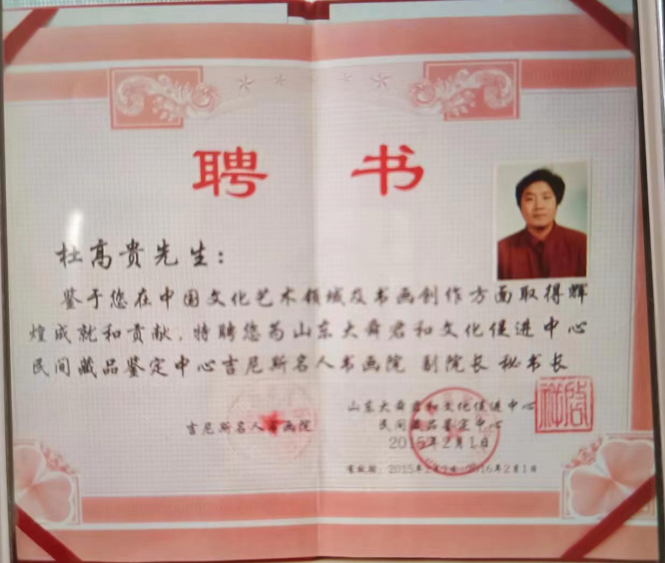 聘 书
杜高贵先生：
鉴于您在中国文化艺术领域及书画创作方面取得辉
煌成就和贡献，特聘您为山东大舜君和文化促进中心
民间藏品鉴定中心吉尼斯名人书画院 副院长 秘书长
山东大舜君和文化促进中心
吉尼斯名人书画院
民间藏品鉴定中心
2015年2月1日
有效期：2015年2月2日-2016年2月1日